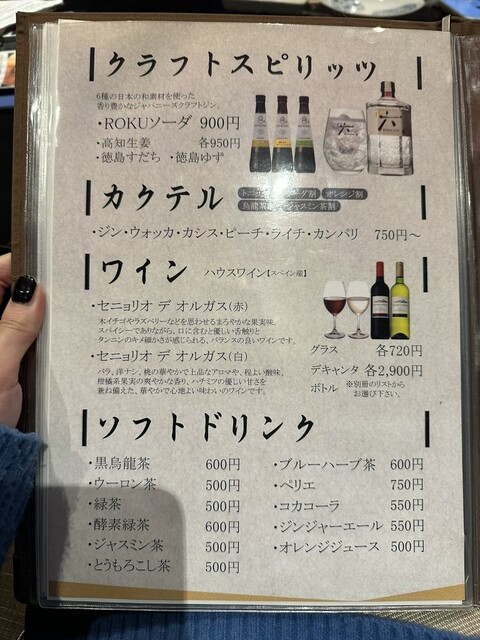 クラフトスピリッツ
6種の日本の和素材を使った
香り豊かなジャパニーズクラフトジン。
・ROKUソーダ 900円
・高知生姜 各950円
・徳島すだち ・徳島ゆず
六
カクテル
ソーダ割 オレンジ割
烏龍茶割 ジャスミン茶割
・ジン・ウォッカ・カシス・ピーチ・ライチ・カンパリ 750円〜
ワイン ハウスワイン【スペイン産】
・セニョリオ デ オルガス(赤)
木イチゴやラズベリーなどを思わせるまろやかな果実味。
スパイシーでありながら、口に含むと優しい舌触りと
タンニンのキメ細かさが感じられる、バランスの良いワインです。
・セニョリオ デ オルガス(白)
バラ、洋ナシ、桃の華やかで上品なアロマや、程よい酸味。
柑橘系果実の爽やかな香り、ハチミツの優しい甘さを
兼ね備えた、華やかで心地よい味わいのワインです。
グラス 各720円
デキャンタ 各2,900円
ボトル ※別冊のリストから
お選び下さい。
ソフトドリンク
・黒烏龍茶 600円
・ウーロン茶 500円
・緑茶 500円
・酵素緑茶 600円
・ジャスミン茶 500円
・とうもろこし茶 500円
・ブルーハーブ茶 600円
・ペリエ 750円
・コカコーラ 550円
・ジンジャーエール 550円
・オレンジジュース 500円